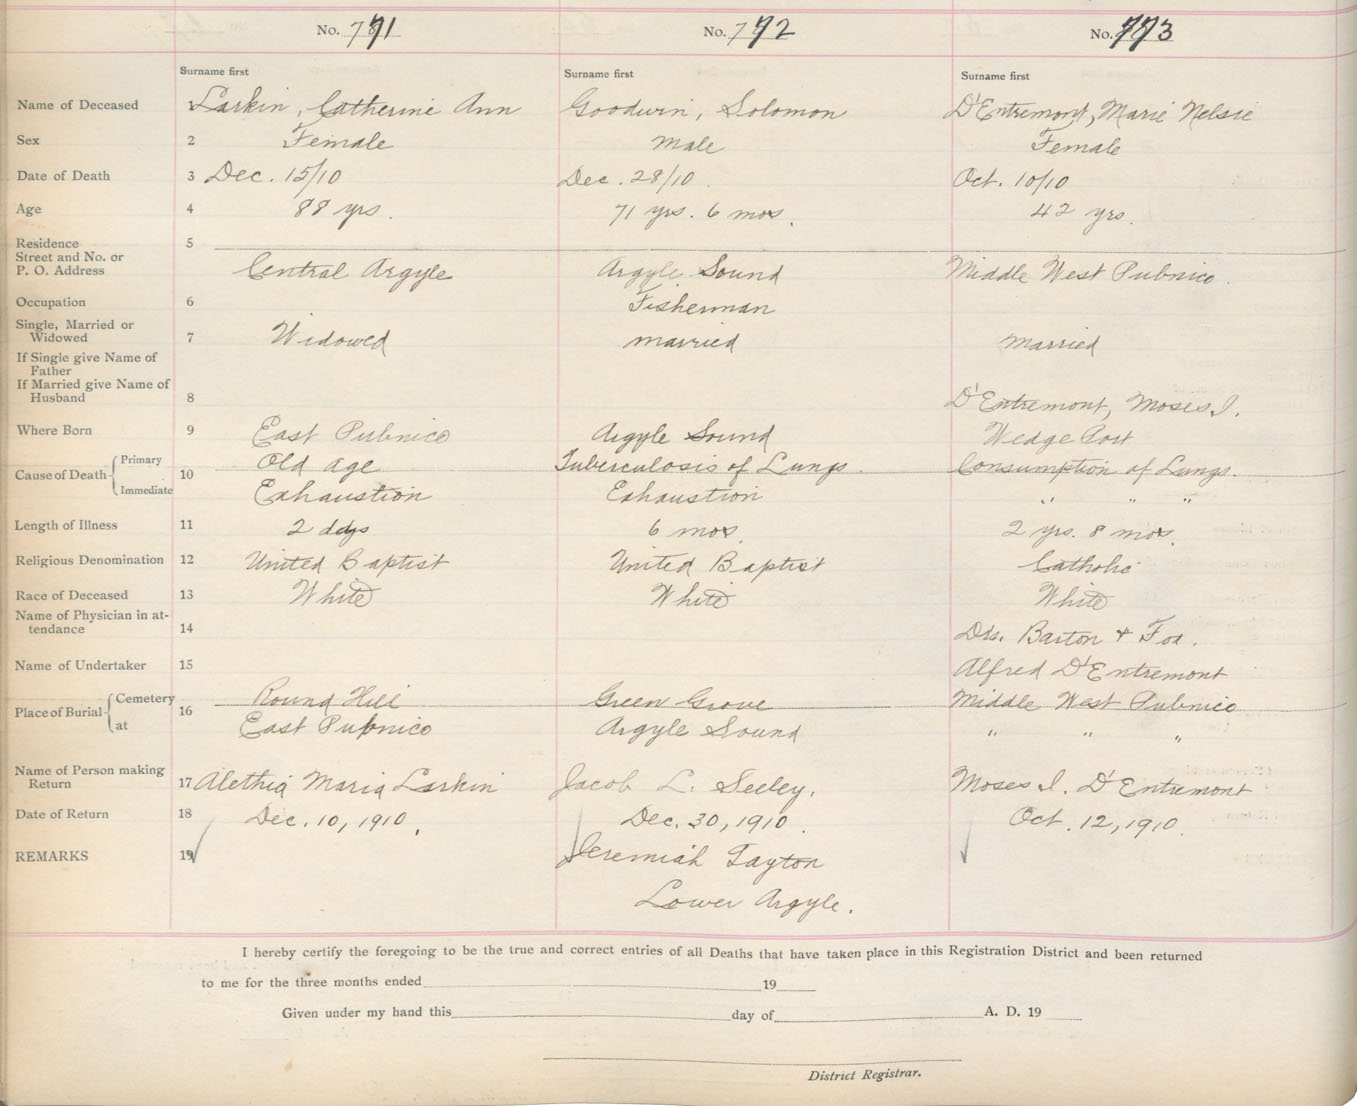 No. 771 No. 772 No. 773
Surname first Surname first Surname first
Name of Deceased 1 Larkin, Catherine Ann Goodwin, Solomon D'Entremont, Marie Nelsie
Sex 2 Female Male Female
Date of Death 3 Dec. 15/10 Dec. 28/10 Oct. 10/10
Age 4 88 yrs. 71 yrs. 6 mos. 42 yrs.
Residence 5
Street and No. or
P. O. Address Central Argyle Argyle Sound Middle West Pubnico.
Occupation 6 Fisherman
Single, Married or
Widowed 7 Widowed married married
If Single give Name of
Father
If Married give Name of
Husband 8 D'Entremont, Moses I.
Where Born 9 East Pubnico Argyle Sound Wedge Port
Cause of Death Primary 10 Old Age Tuberculosis of Lungs. Consumption of Lungs.
Immediate Exhaustion Exhaustion " " "
Length of Illness 11 2 days 6 mos. 2 yrs. 8 mos.
Religious Denomination 12 United Baptist United Baptist Catholic
Race of Deceased 13 White White White
Name of Physician in at-
tendance 14 Drs. Barton & Fox.
Name of Undertaker 15 Alfred D'Entremont
Place of Burial Cemetery 16 Round Hill Green Grove Middle West Pubnico
at East Pubnico Argyle Sound " " "
Name of Person making
Return 17 Alethia Maria Larkin Jacob L. Seeley. Moses I. D'Entremont
Date of Return 18 Dec. 10, 1910. Dec. 30, 1910. Oct. 12, 1910.
REMARKS 19 Jeremiah Frayton
Lower Argyle.
I hereby certify the foregoing to be the true and correct entries of all Deaths that have taken place in this Registration District and been returned
to me for the three months ended 19
Given under my hand this day of A. D. 19
District Registrar.